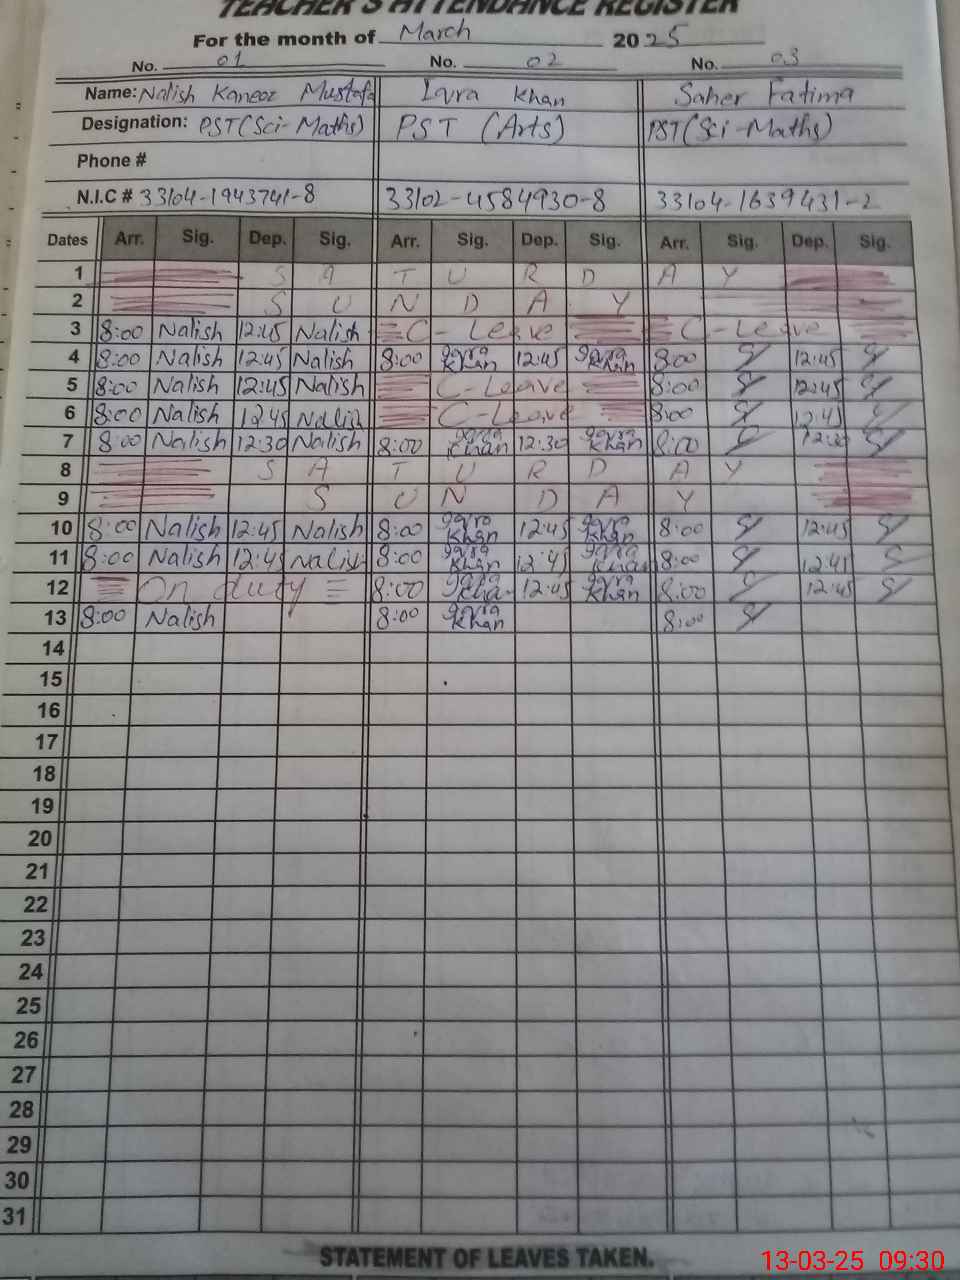 TEACHER'S ATTENDANCE REGISTER
For the month of March 2025
No. 01 No. 02 No. 03
Name: Nalish Kaneez Mustafa Iqra Khan Saher Fatima
Designation: PST (Sci-Maths) PST (Arts) PST (Sci-Maths)
Phone #
N.I.C # 33104-1943741-8 33102-4584930-8 33104-1639431-2
Dates Arr. Sig. Dep. Sig. Arr. Sig. Dep. Sig. Arr. Sig. Dep. Sig.
1 S A T U R D A Y
2 S U N D A Y
3 8:00 Nalish 12:45 Nalish C-Leave C-Leave
4 8:00 Nalish 12:45 Nalish 8:00 Iqra Khan 12:45 Iqra Khan 8:00 12:45
5 8:00 Nalish 12:45 Nalish C-Leave 8:00 12:45
6 8:00 Nalish 12:45 Nalish C-Leave 8:00 12:45
7 8:00 Nalish 12:30 Nalish 8:00 Iqra Khan 12:30 Iqra Khan 8:00 12:30
8 S A T U R D A Y
9 S U N D A Y
10 8:00 Nalish 12:45 Nalish 8:00 Iqra Khan 12:45 Iqra Khan 8:00 12:45
11 8:00 Nalish 12:45 Nalish 8:00 Iqra Khan 12:45 Iqra Khan 8:00 12:45
12 On duty 8:00 Iqra Khan 12:45 Iqra Khan 8:00 12:45
13 8:00 Nalish 8:00 Iqra Khan 8:00
14
15
16
17
18
19
20
21
22
23
24
25
26
27
28
29
30
31
STATEMENT OF LEAVES TAKEN.
13-03-25 09:30